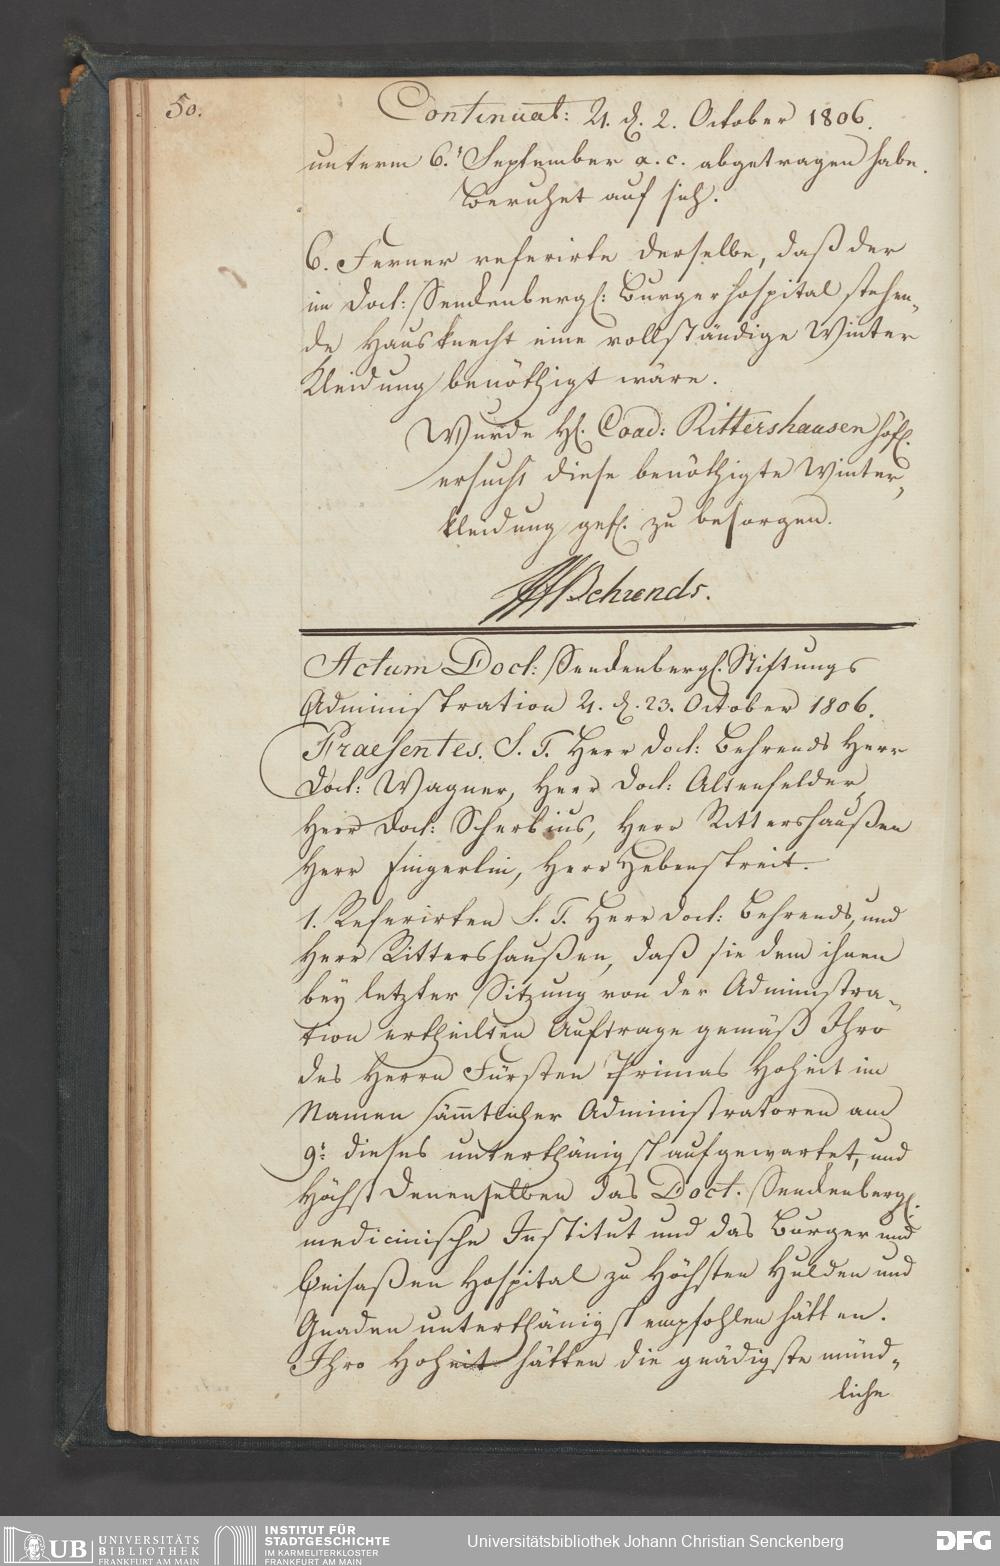 50.
Continuat: 21. d. 2. October 1806.
unterm 6.t September a. c. abgetragen habe.
Beruhet auf sich.
6. Ferner referirte derselbe, daß der
im Doct: Senckenbergl: Burgerhospital stehen„
de Hausknecht eine vollständige Winter
Kleidung benöthigt wäre.
Wurde H. Coad: Rittershausen höfl.
ersucht diese benöthigte Winter„
kleidung gef. zu besorgen.
Behrends.
Actum Doct: Senckenbergl. Stiftungs
Administration 21. d. 23. October 1806.
Praesentes. S. T. Herr Doct: Behrends Herr
Doct: Wagner, Herr Doct: Altenfelder,
Herr Doct: Scherbius, Herr Rittershaußen
Herr Fingerlin, Herr Hebenstreit.
1. Referirten S. T. Herr Doct: Behrends, und
Herr Rittershaußen, daß sie dem ihnen
bey letzter Sitzung von der Administra„
tion ertheilten Auftrage gemäß Ihro
des Herrn Fürsten Primas Hoheit im
Namen sämtlicher Administratoren am
9t: dieses unterthänigst aufgewartet, und
Höchst Denenselben das Doct. Senckenbergl.
medicinische Institut und das Burger und
Beisaßen Hospital zu Höchsten Hulden und
Gnaden unterthänigst empfohlen hätten.
Ihro Hoheit hätten die gnädigste münd„
liche
UB UNIVERSITÄTS
BIBLIOTHEK
FRANKFURT AM MAIN
INSTITUT FÜR
STADTGESCHICHTE
IM KARMELITERKLOSTER
FRANKFURT AM MAIN
Universitätsbibliothek Johann Christian Senckenberg
DFG